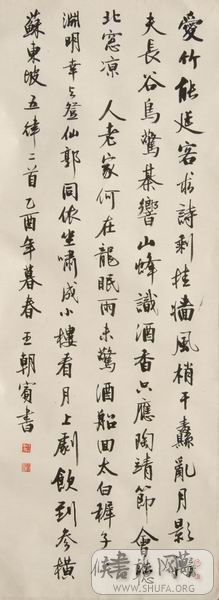 愛竹能延客求詩剩挂牆風梢千纛亂月影萬
夫長谷鳥驚棊響山蜂識酒香只應陶靖節會聽
北窓凉 人老家何在龍眠雨未驚酒船回太白稚子候
淵明幸與登仙郭同依坐嘯成小樓看月上劇飲到參橫
蘇東坡五律二首乙酉年暮春王朝賓書
WWW.SHUFA.ORG